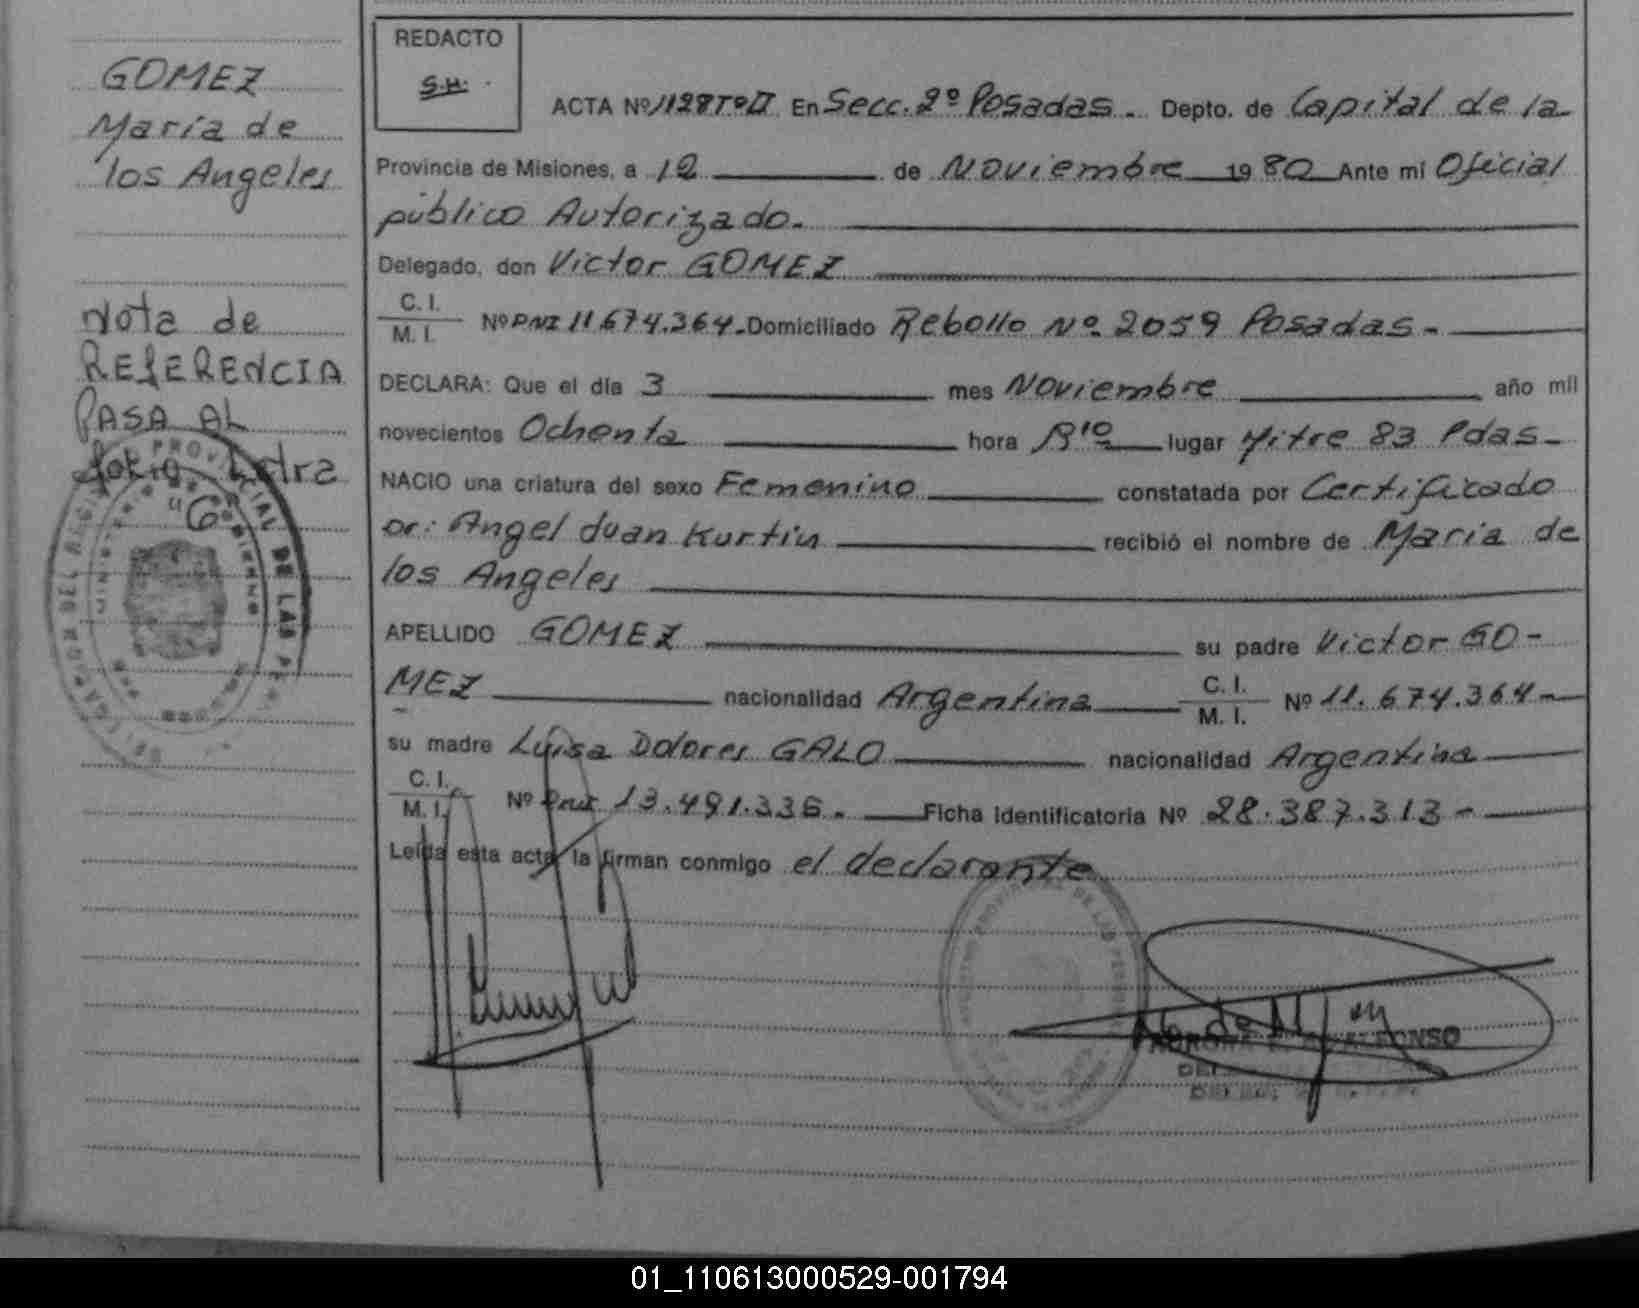 GOMEZ
María de
los Angeles
Nota de
REFERENCIA
PASA AL
folio Letra
"G
REDACTO
S.H.
ACTA Nº 1128 Tº II En Secc. 2º Posadas. Depto. de Capital de la
Provincia de Misiones, a 12 de Noviembre 1980 Ante mi Oficial
público Autorizado.
Delegado, don Victor GOMEZ
C. I.
M. I. Nº DNI 11.674.364.- Domiciliado Rebollo Nº 2059 Posadas-
DECLARA: Que el día 3 mes Noviembre año mil
novecientos Ochenta hora lugar Mitre 83 Pdas-
NACIO una criatura del sexo Femenino constatada por Certificado
Dr: Angel Juan Kurtin recibió el nombre de María de
los Angeles
APELLIDO GOMEZ su padre Victor GO-
MEZ nacionalidad Argentina C. I.
M. I. Nº 11.674.364-
su madre Luisa Dolores GALO nacionalidad Argentina
C. I.
M. I. Nº DNI 13.491.336.- Ficha Identificatoria Nº 28.387.313-
Leída esta acta la firman conmigo el declarante
PROVINCIAL DE LAS
MINISTERIO DE GOBIERNO
01_110613000529-001794